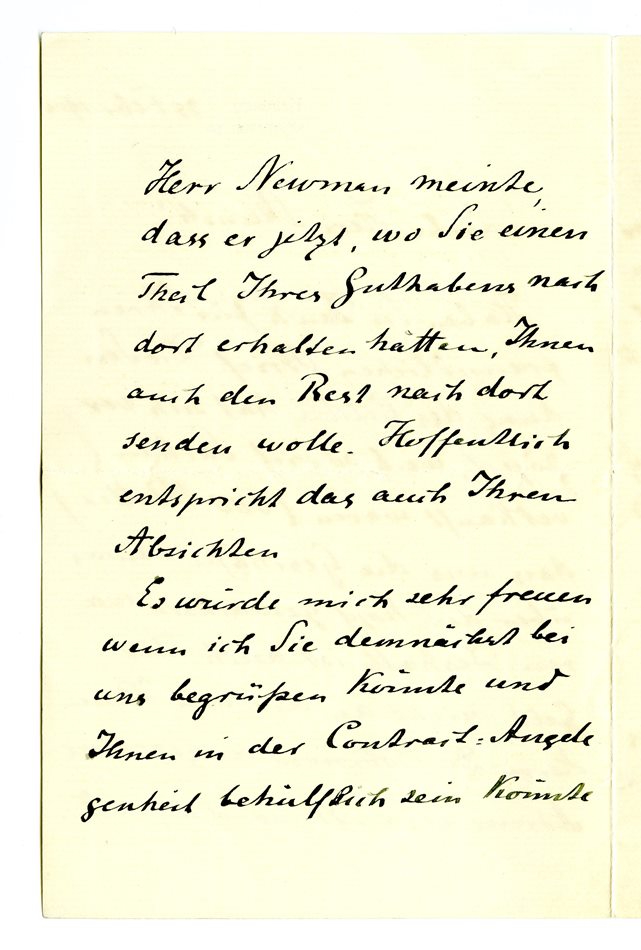 Herr Newman meinte,
dass er jetzt, wo Sie einen
Theil Ihres Guthabens nach
dort erhalten hätten, Ihnen
auch den Rest nach dort
senden wolle. Hoffentlich
entspricht das auch Ihren
Absichten
Es würde mich sehr freuen
wenn ich Sie demnächst bei
uns begrüßen könnte und
Ihnen in der Contract-Angele
genheit behülflich sein könnte